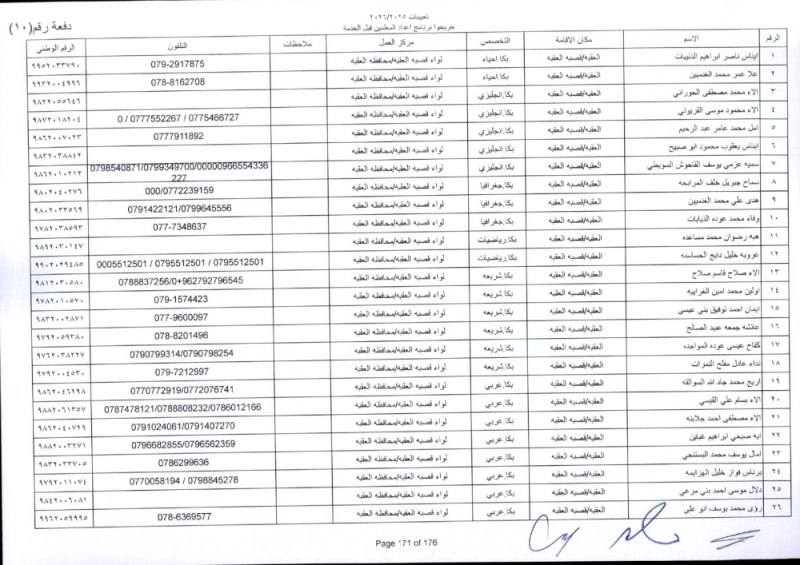 تعيينات ٢٠٢٦/٢٠٢٥
خريجوا برنامج اعداد المعلمين قبل الخدمة
دفعة رقم (١٠)
الرقم الاسم مكان الاقامة التخصص مركز العمل ملاحظات التلفون الرقم الوطني
١ ايناس ناصر ابراهيم الذنيبات العقبه/قصبه العقبه بكا.احياء لواء قصبه العقبه/محافظه العقبه 079-2917875 ٩٩٥٢٠٣٣٧٩٠
٢ علا عمر محمد الغنميين العقبه/قصبه العقبه بكا.احياء لواء قصبه العقبه/محافظه العقبه 078-8162708 ٩٩٣٢٠٠٤٩٩٦
٣ الاء محمد مصطفى الحوراني العقبه/قصبه العقبه بكا.انجليزي لواء قصبه العقبه/محافظه العقبه ٩٨٢٢٠٥٥٦٤٦
٤ الاء محمود موسى القريوتي العقبه/قصبه العقبه بكا.انجليزي لواء قصبه العقبه/محافظه العقبه 0 / 0777552267 / 0775466727 ٩٨٧٢٠١٨٢٠٤
٥ امل محمد عامر عبد الرحيم العقبه/قصبه العقبه بكا.انجليزي لواء قصبه العقبه/محافظه العقبه 0777911892 ٩٨٦٢٠٠٧٠٢٣
٦ ايناس يعقوب محمود ابو صبيح العقبه/قصبه العقبه بكا.انجليزي لواء قصبه العقبه/محافظه العقبه ٩٨٣٢٠٣٨٨٤٢
٧ سميه عزمي يوسف الفاخوش السويطي العقبه/قصبه العقبه بكا.انجليزي لواء قصبه العقبه/محافظه العقبه 0798540871/0799349700/00000966554336227 ٩٨٦٢٠١٠٢١٢
٨ سماح جبريل خلف المرابحه العقبه/قصبه العقبه بكا.جغرافيا لواء قصبه العقبه/محافظه العقبه 000/0772239159 ٩٨٠٢٠٤٠٢٧٦
٩ هدى علي محمد الغنميين العقبه/قصبه العقبه بكا.جغرافيا لواء قصبه العقبه/محافظه العقبه 0791422121/0799645556 ٩٨٠٢٠٣٣٥٦٩
١٠ وفاء محمد عوده الذيابات العقبه/قصبه العقبه بكا.جغرافيا لواء قصبه العقبه/محافظه العقبه 077-7348637 ٩٧٨٢٠٣٨٥٩٣
١١ هبه رضوان محمد مساعده العقبه/قصبه العقبه بكا.رياضيات لواء قصبه العقبه/محافظه العقبه ٩٨٩٢٠٣٠١٤٧
١٢ عروبه خليل دايج الحساسنه العقبه/قصبه العقبه بكا.رياضيات لواء قصبه العقبه/محافظه العقبه 0005512501 / 0795512501 / 0795512501 ٩٩٠٢٠٢٩٤٨٥
١٣ الاء صلاح قاسم صلاح العقبه/قصبه العقبه بكا.شريعه لواء قصبه العقبه/محافظه العقبه 0788837256/0+962792796545 ٩٨١٢٠٣٠٥٨٠
١٤ اولين محمد امين الغرايبه العقبه/قصبه العقبه بكا.شريعه لواء قصبه العقبه/محافظه العقبه 079-1574423 ٩٧٨٢٠١٠٥٧٠
١٥ ايمان احمد توفيق بني عيسى العقبه/قصبه العقبه بكا.شريعه لواء قصبه العقبه/محافظه العقبه 077-9600097 ٩٨٣٢٠٠٢٨٧١
١٦ عائشه جمعه عبيد الصالح العقبه/قصبه العقبه بكا.شريعه لواء قصبه العقبه/محافظه العقبه 078-8201496 ٩٧٩٢٠٥٩٣٨٠
١٧ كفاح عيسى عوده المواجده العقبه/قصبه العقبه بكا.شريعه لواء قصبه العقبه/محافظه العقبه 0790799314/0790798254 ٩٧٦٢٠٣٨٢٢٧
١٨ نداء عادل مفلح النمرات العقبه/قصبه العقبه بكا.شريعه لواء قصبه العقبه/محافظه العقبه 079-7212997 ٩٧٩٢٠٠٤٥٣٠
١٩ اريج محمد جاد الله السوالقه العقبه/قصبه العقبه بكا.عربي لواء قصبه العقبه/محافظه العقبه 0770772919/0772076741 ٩٨٦٢٠٤٦٢٩٨
٢٠ الاء بسام علي القيسي العقبه/قصبه العقبه بكا.عربي لواء قصبه العقبه/محافظه العقبه 0787478121/0788808232/0786012166 ٩٨٨٢٠٦١٣٥٧
٢١ الاء مصطفى احمد جلابنه العقبه/قصبه العقبه بكا.عربي لواء قصبه العقبه/محافظه العقبه 0791024061/0791407270 ٩٨٦٢٠٤٠٧٢٩
٢٢ ايه صبحي ابراهيم غباين العقبه/قصبه العقبه بكا.عربي لواء قصبه العقبه/محافظه العقبه 0796682855/0796562359 ٩٨٨٢٠٠٣٢٧١
٢٣ امال يوسف محمد البستنجي العقبه/قصبه العقبه بكا.عربي لواء قصبه العقبه/محافظه العقبه 0786299636 ٩٨٣٢٠٣٣٧٠٥
٢٤ برناس فواز خليل الهزايمه العقبه/قصبه العقبه بكا.عربي لواء قصبه العقبه/محافظه العقبه 0770058194 / 0798845278 ٩٧٩٢٠١١٠٧٤
٢٥ دلال موسى احمد بني مرعي العقبه/قصبه العقبه بكا.عربي لواء قصبه العقبه/محافظه العقبه ٩٨٤٢٠٠٦٠٨١
٢٦ رؤى محمد يوسف ابو علي العقبه/قصبه العقبه بكا.عربي لواء قصبه العقبه/محافظه العقبه 078-6369577 ٩٩٦٢٠٥٩٩٩٥
Page 171 of 176